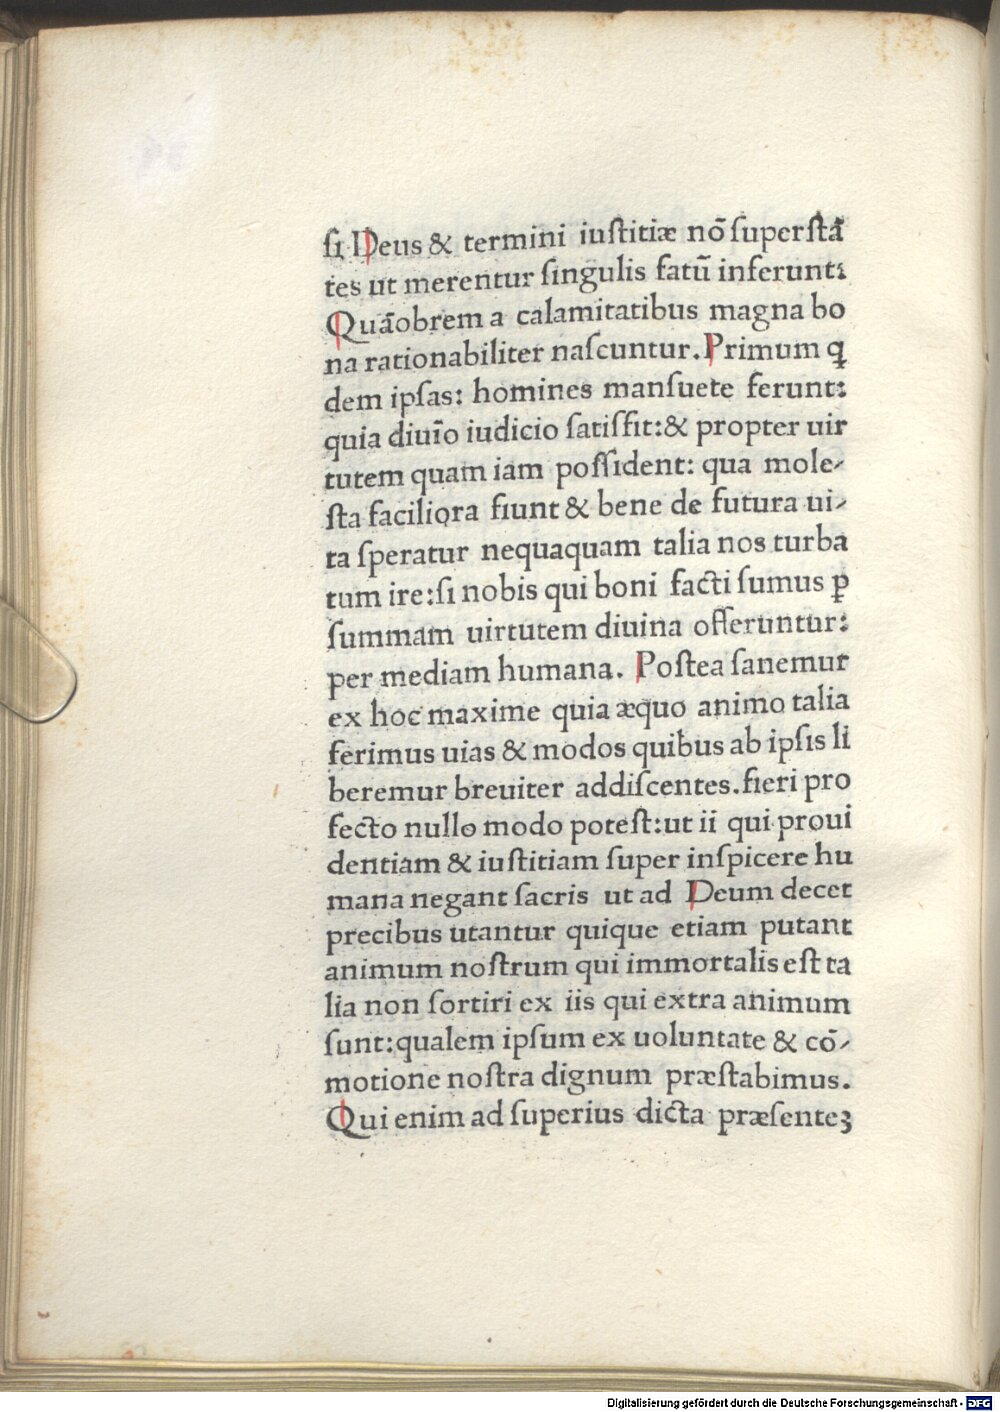 ſi Deus & termini iuſtitiæ nō ſuperſtā
tes ut merentur ſingulis fatū inferunt:
Quāobrem a calamitatibus magna bo
na rationabiliter naſcuntur. Primum ꝗ
dem ipſas: homines manſuete ferunt:
quia diuīo iudicio ſatiſfit: & propter uir
tutem quam iam poſſident: qua mole-
ſta faciliora fiunt & bene de futura ui-
ta ſperatur nequaquam talia nos turba
tum ire: ſi nobis qui boni facti ſumus ꝑ
ſummam uirtutem diuina offeruntur:
per mediam humana. Poſtea ſanemur
ex hoc maxime quia æquo animo talia
ferimus uias & modos quibus ab ipſis li
beremur breuiter addiſcentes. fieri pro
fecto nullo modo poteſt: ut ii qui proui
dentiam & iuſtitiam ſuper inſpicere hu
mana negant ſacris ut ad Deum decet
precibus utantur quique etiam putant
animum noſtrum qui immortalis eſt ta
lia non ſortiri ex iis qui extra animum
ſunt: qualem ipſum ex uoluntate & cō-
motione noſtra dignum præſtabimus.
Qui enim ad ſuperius dicta præſenteꝫ
Digitalisierung gefördert durch die Deutsche Forschungsgemeinschaft - DFG